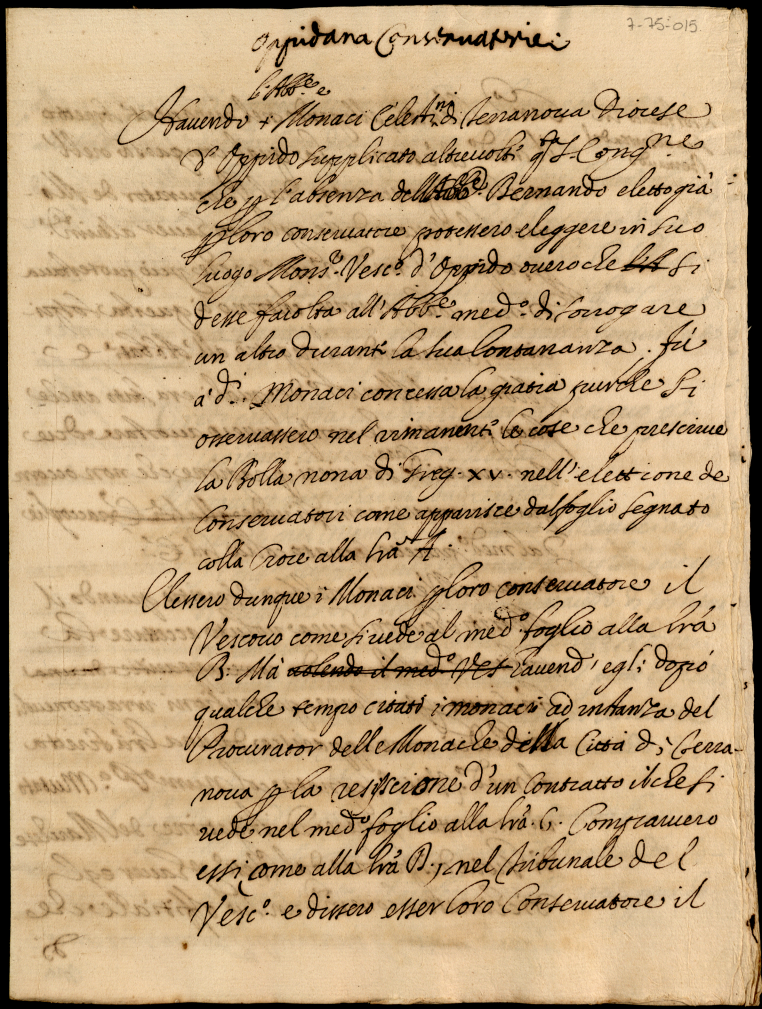 7-75-015
Oppidana Conservatoriei
l'Abb.e e
Havendo + Monaci Celestini di Terranova Diocese
d'Oppido supplicato altrevolte q.ta S. Cong.ne
che p l'absenza dell'Abb.e Bernando eletto già
p loro conservatore potessero eleggere in suo
luogo Mons.r Vesc.o d'Oppido overo che si
desse facoltà all'Abb.e med.o di sorrogare
un altro durante la sua lontananza. Fù
a' d.i Monaci concessa la gratia purche si
osservassero nel rimanente le cose che prescrive
la Bolla nona di Greg. XV. nell'elettione de
Conservatori come apparisce dal foglio segnato
colla Croce alla lrã A
Elessero dunque i Monaci p loro conservatore il
Vescovo come si vede al med.o foglio alla lrã
B. Mà volendo il med.o Ves havend' egli doppó
qualche tempo citati i monaci ad instanza del
Procurator delle Monache della Città di Terra-
nova p la rescissione d'un Contratto il che si
vede nel med.o foglio alla lrã. C. Comparvero
essi come alla lrã D, nel Tribunale del
Vesc.o e dissero esser loro Conservatore il